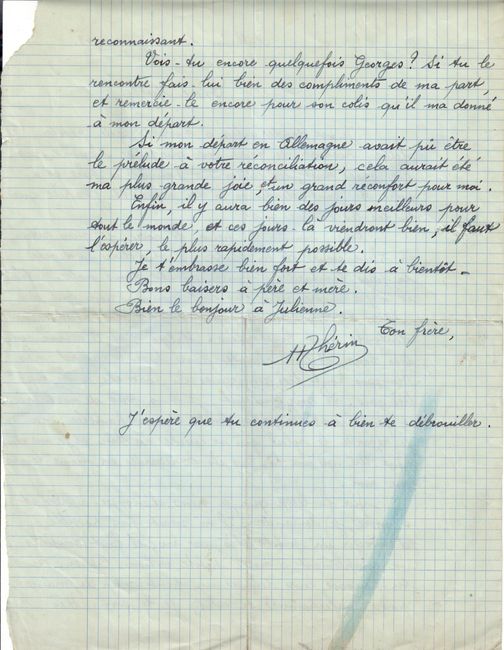 reconnaissant.
Vois-tu encore quelquefois Georges ? Si tu le
rencontre fais-lui bien des compliments de ma part,
et remercie-le encore pour son colis qu'il ma donné
à mon départ.
Si mon départ en Allemagne avait pû être
le prélude à votre réconciliation, cela aurait été
ma plus grande joie, et un grand reconfort pour moi.
Enfin, il y aura bien des jours meilleurs pour
tout le monde, et ces jours-là viendront bien, il faut
l'espérer, le plus rapidement possible.
Je t'embrasse bien fort et te dis à bientôt -
Bons baisers à père et mère.
Bien le bonjour à Julienne.
Ton frère,
Thérin
J'espère que tu continues à bien te débrouiller.